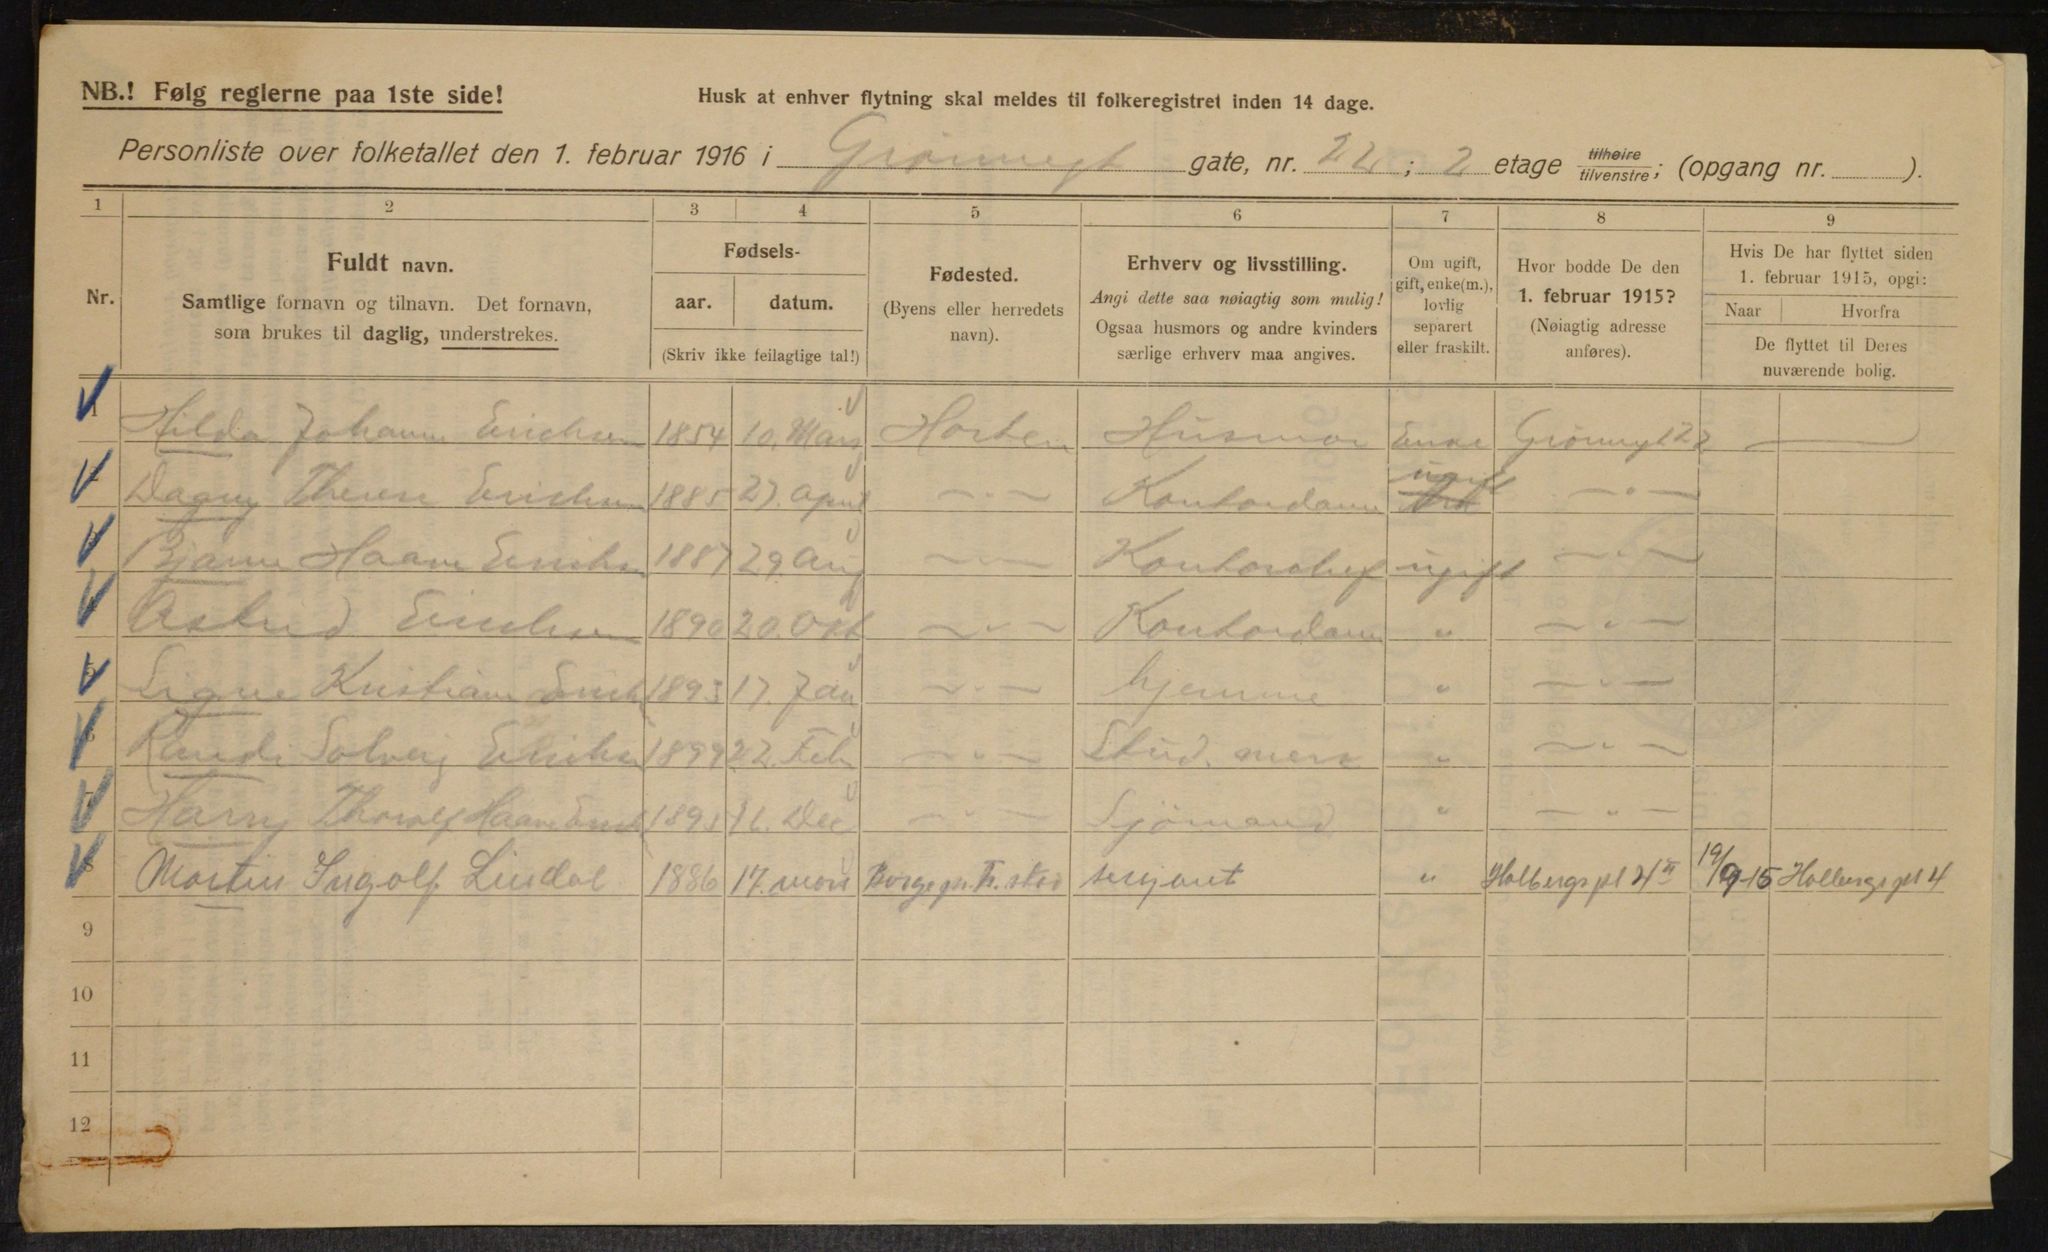 NB.! Følg reglerne paa 1ste side!
Husk at enhver flytning skal meldes til folkeregistret inden 14 dage.
Personliste over folketallet den 1. februar 1916 i Grønnegt gate, nr. 22; 2 etage tilhøire tilvenstre; (opgang nr. ).
1 2 3 4 5 6 7 8 9
Nr.
Fuldt navn.
Samtlige fornavn og tilnavn. Det fornavn,
som brukes til daglig, understrekes.
Fødsels-
aar. datum.
(Skriv ikke feilagtige tal!)
Fødested.
(Byens eller herredets
navn).
Erhverv og livsstilling.
Angi dette saa nøiagtig som mulig!
Ogsaa husmors og andre kvinders
særlige erhverv maa angives.
Om ugift,
gift, enke(m.),
lovlig
separert
eller fraskilt.
Hvor bodde De den
1. februar 1915?
(Nøiagtig adresse
anføres).
Hvis De har flyttet siden
1. februar 1915, opgi:
Naar Hvorfra
De flyttet til Deres
nuværende bolig.
1 Hilda Johanne Erichsen 1854 10. Mars Horten Husmor Enke Grønnegt 22
2 Dagny Therese Erichsen 1885 27. April — " — Kontordame ugift — " —
3 Bjarne Haave Erichsen 1887 29 Aug — " — Kontorchef ugift — " —
4 Astrid Erichsen 1890 20. Okt — " — Kontordame " — " —
5 Signe Kristiane Erichs 1893 17. Jan — " — hjemme " — " —
6 Randi Solveig Erichsen 1899 22. Feb — " — Stud. merc " — " —
7 Harry Thorolf Haave Erich 1895 16. Dec — " — Sjømand " — " —
8 Martin Ingolf Lindal 1886 17. mars Borge pr. Fr. stad sersjant " Holbergs pl 4 II 19/9-15 Holbergs pl 4
9
10
11
12